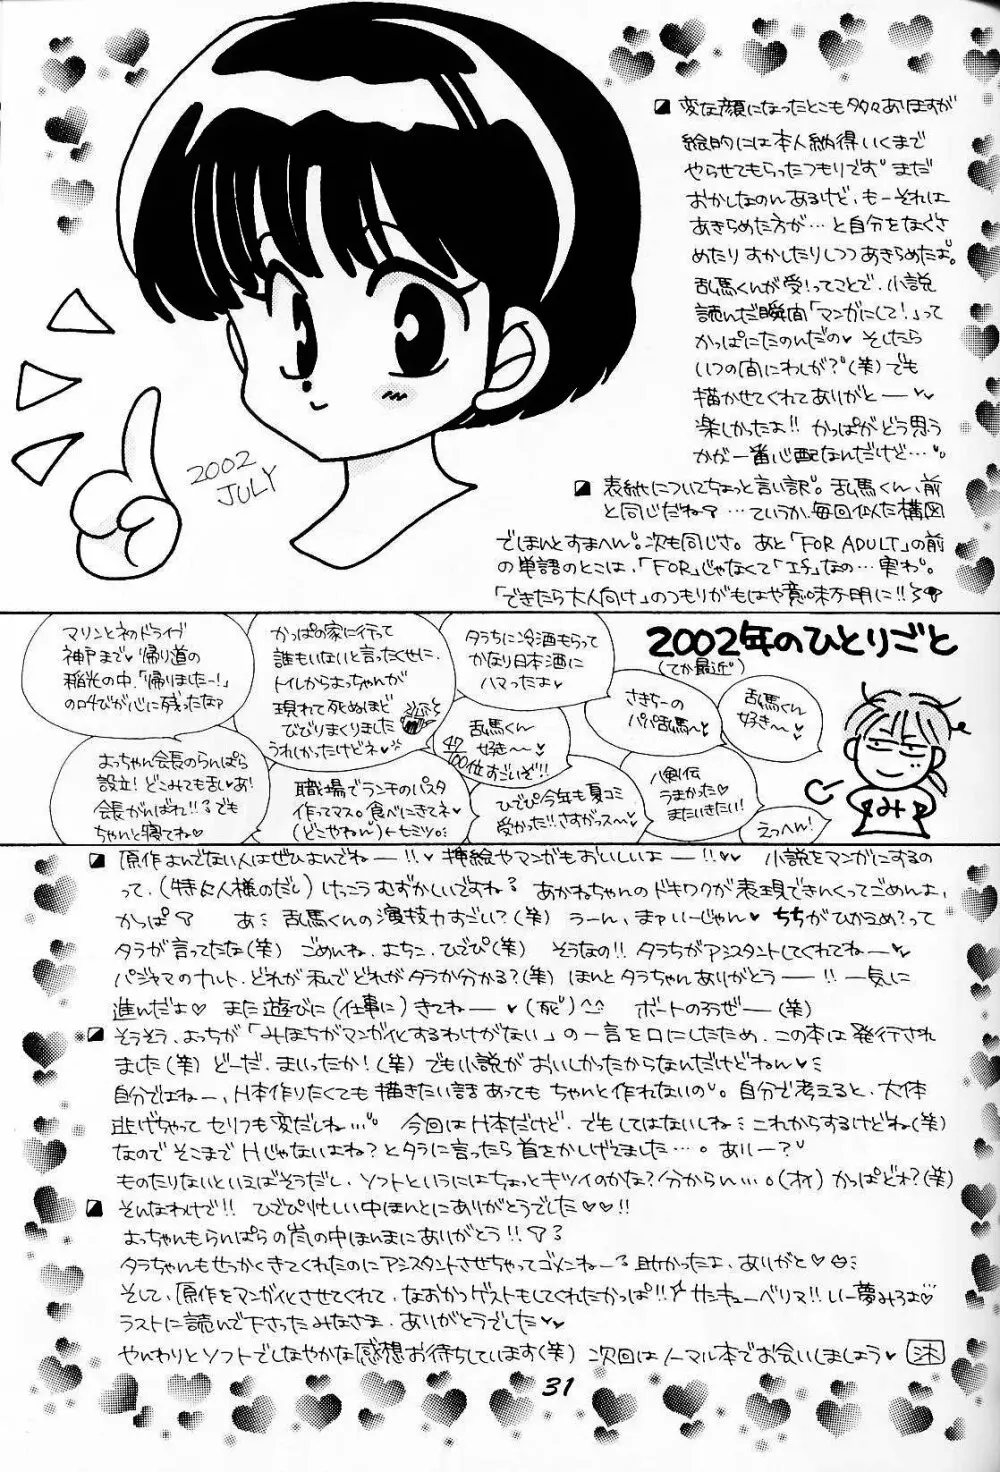 変な顔になったとこも多々ありますが
絵的には本人納得いくまで
やらせてもらったつもりです。まだ
おかしなのんあるけど、もーそれは
あきらめた方が…と自分をなぐさ
めたりすかしたりしつつあきらめたよ。
乱馬くんが受!ってことで、小説
読んだ瞬間「マンガにして!」って
かっぱにたのんだの♥ そしたら
いつの間にわしが?(笑)でも
描かせてくれてありがとー♥
楽しかったよ!! かっぱがどう思う
かが一番心配なんだけど…。
表紙についてちょっと言い訳。乱馬くん、前
と同じだね? …ていうか、毎回似た構図
でほんとすまへん。次も同じさ。あと「FOR ADULT」の前
の単語のとこは、「FOR」じゃなくて「If」なの…実わ。
「できたら大人向け」のつもりがもはや意味不明に!!
2002年のひとりごと
(てか最近)
マリンとネのドライブ
神戸まで♥帰り道の
稲光の中、「帰りましたー!」
の叫びが心に残ったなァ
かっぱの家に行って
誰もいないと言ったくせに、
トイレからよっちゃんが
現れて死ぬほど
びびりまくりました
うれしかったけどネ♥
タラちに冷酒もらって
かなり日本酒に
ハマったよ♥
さきちーの
パパ乱馬〜♥
乱馬くん
好き〜♥
よっちゃん会長のらんぱら
設立!どこみても乱♥よ!
会長がんばれ!!でも
ちゃんと寝てね♡
職場でランチのパスタ
作ってマス。食べにきてネ♥
(どこやねん)←セミツ
乱馬くん
好き〜〜♥
47/100位すごいぞ!!
ひでぴ今年も夏コミ
受かった!!さすがっス〜♥
八剣伝
うまかった♥
またいきたい!
えっへん!
み
2002
JULY
原作よんでない人はぜひよんでねー!!♥ 挿絵やマンガもおいしいよー!!♥♥ 小説をマンガにするの
って、(特に人様のだし)けっこうむずかしいですね? あかねちゃんのドキワクが表現できんくってごめんよ、
かっぱ? あ、乱馬くんの演技力すごい?(笑) うーん、まァいーじゃん♥ ちちがひかえめ?って
タラが言ってたな(笑) ごめんね、よちこ、ひでぴ(笑) そうなの!! タラちがアシスタントしてくれてねー♥
パジャマのナルト、どれが私でどれがタラか分かる?(笑) ほんとタラちゃんありがとうー!! 一気に
進んだよ♡ また遊びに(仕事に)きてねー♥(死)^^ ボートのろうぜー(笑)
そうそう、よっちが「みほちがマンガ化するわけがない」の一言を口にしたため、この本は発行され
ました(笑) どーだ、まいったか!(笑)でも小説がおいしかったからなんだけどねん♥
自分ではねー、H本作りたくても描きたい話あってもちゃんと作れないの。自分で考えると、大体
逃げちゃってセリフも変だしね…。 今回はH本だけど、でもしてはないしね これからするけどね(笑)
なのでそこまでHじゃないよね?とタラに言ったら首をかしげてました…。ありー?
ものたりないといえばそうだし、ソフトというにはちょっとキツイのかな?分からん…。(オイ)かっぱどれ?(笑)
そんなわけで!! ひでぴ忙しい中ほんとにありがとうでした♡♡!!
よっちゃんもらんぱらの嵐の中ほんまにありがとう!!
タラちゃんもせっかくきてくれたのにアシスタントさせちゃってゴメンねー 助かったよ、ありがと♡
そして、原作をマンガ化させてくれて、なおかつゲストもしてくれたかっぱ!! サンキューベリマ!! いー夢みろよ♡
ラストに読んで下さったみなさま、ありがとうでした♥
やんわりとソフトでしなやかな感想お待ちしています(笑) 次回はノーマル本でお会いしましょう♥
31